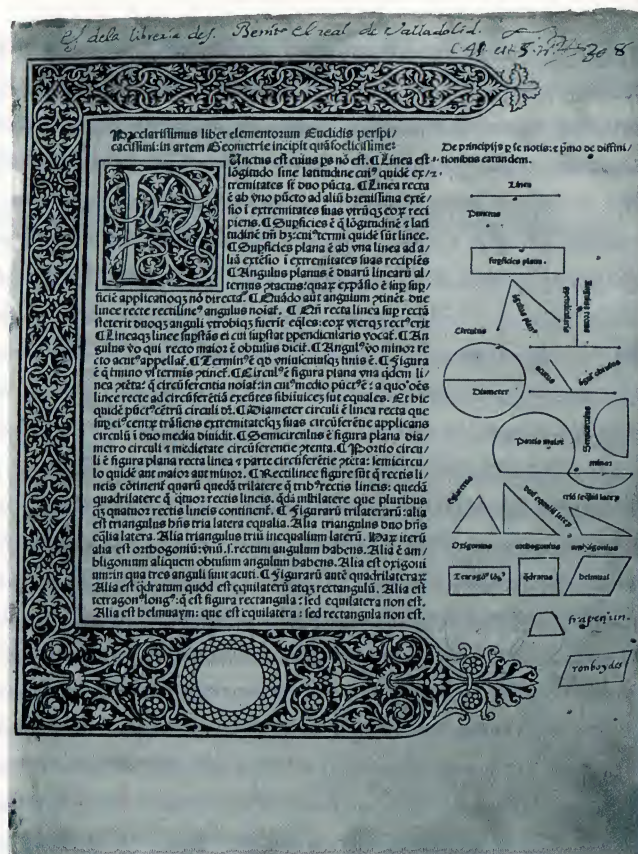 Es dela libreria de S. Benito el real de Valladolid.
Preclarissimus liber elementorum Euclidis perspi/
cacissimi: in artem Geometrie incipit quāfoelicissime:
Unctus est cuius ps nō est. ¶ Linea est
lōgitudo sine latitudine cui⁹ quidē ex/
tremitates st duo pūcta. ¶ Linea recta
ē ab vno pūcto ad aliū breuissima extē/
sio ī extremitates suas vtrūqꝫ eoꝝ reci
piens. ¶ Supficies ē q̄ lōgitudinē ⁊ lati
tudinē tm̄ hꝫ: cui⁹ termi quidē sūt linee.
¶ Supficies plana ē ab vna linea ad a/
liā extēsio ī extremitates suas recipiēs
¶ Angulus planus ē duarū linearū al/
ternus ꝓtactus: quaꝝ expāsio ē sup sup/
ficiē applicatioqꝫ nō directa. ¶ Quādo aūt angulum ꝓtinēt due
linee recte rectiline⁹ angulus noiat̄. ¶ Qn̄ recta linea sup rectā
steterit duoqꝫ anguli vtrobiqꝫ fuerit eq̄les: eoꝝ vterqꝫ rect⁹erit
¶ Lineaqꝫ linee supstās ei cui supstat ppendicularis vocat̄. ¶ An
gulus vo qui recto maior ē obtusus dicit̄. ¶ Angul⁹ vo minor re
cto acut⁹appellat̄. ¶ Termin⁹ē qd̄ vniuscuiusqꝫ finis ē. ¶ Figura
ē q̄ tmino vl terminis ꝓtinet̄. ¶ Circul⁹ē figura plana vna qdem li/
nea ꝓtēta: q̄ circūferentia noiat̄: in cui⁹medio pūct⁹ē: a quo oēs
linee recte ad circūferētiā exeūtes sibiinuicē sūt equales. Et hic
quidē pūct⁹cētrū circuli dr̄. ¶ Diameter circuli ē linea recta que
sup ei⁹centꝝ trāsiens extremitatesqꝫ suas circūferētie applicans
circulū ī duo media diuidit. ¶ Semicirculus ē figura plana dia/
metro circuli ⁊ medietate circūferentie ꝓtenta. ¶ Portio circu/
li ē figura plana recta linea ⁊ parte circūferētie ꝓtēta: semicircu/
lo quidē aut maior aut minor. ¶ Rectilinee figure sūt q̄ rectis li/
neis cōtinent̄ quarū quedā trilatere q̄ trib⁹rectis lineis: quedā
quadrilatere q̄ q̄tuor rectis lineis. q̄dā mltilatere que pluribus
qꝫ quatuor rectis lineis continent̄. ¶ Figurarū trilaterarū: alia
est triangulus hn̄s tria latera equalia. Alia triangulus duo hn̄s
eq̄lia latera. Alia triangulus triū inequalium laterū. Haꝝ iterū
alia est orthogoniū: vnū .s. rectum angulum habens. Alia ē am/
bligonium aliquem obtusum angulum habens. Alia est oxigoni
um: in qua tres anguli sunt acuti. ¶ Figurarū autē quadrilateraꝝ
Alia est q̄dratum quod est equilaterū atqꝫ rectangulū. Alia est
tetragon⁹long⁹: q̄ est figura rectangula: sed equilatera non est.
Alia est helmuaym: que est equilatera: sed rectangula non est.
De principijs p se notis: ⁊ pmo de diffini/
tionibus earundem.
Linea
Punctus
supficies plana.
Circulus
Diameter
Portio maior
Semicirculus
minor
Oxigonius
orthogonius
ambligonius
Tetragon⁹ lōg⁹
q̄dratus
helmuai
trapeziun.
romboydes